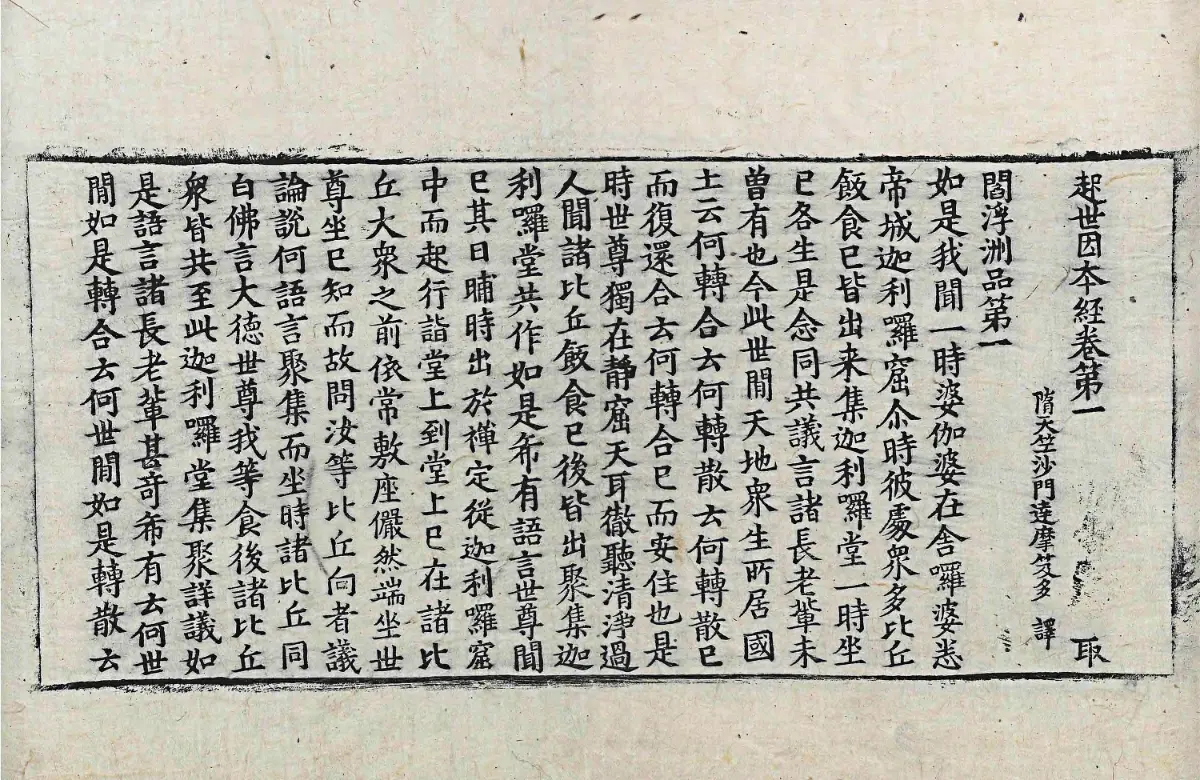 起世因本經卷第一 取
隋天竺沙門達摩笈多 譯
閻浮洲品第一
如是我聞一時婆伽婆在舍囉婆悉
帝城迦利囉窟尒時彼處衆多比丘
飯食已皆出来集迦利囉堂一時坐
已各生是念同共議言諸長老輩未
曽有也今此世間天地衆生所居國
土云何轉合云何轉散云何轉散已
而復還合云何轉合已而安住也是
時世尊獨在靜窟天耳徹聽清淨過
人聞諸比丘飯食已後皆出聚集迦
利囉堂共作如是希有語言世尊聞
已其日晡時出於禪定從迦利囉窟
中而起行詣堂上到堂上已在諸比
丘大衆之前依常敷座儼然端坐世
尊坐已知而故問汝等比丘向者議
論說何語言聚集而坐時諸比丘同
白佛言大德世尊我等食後諸比丘
衆皆共至此迦利囉堂集聚詳議如
是語言諸長老輩甚竒希有云何世
間如是轉合云何世間如是轉散云